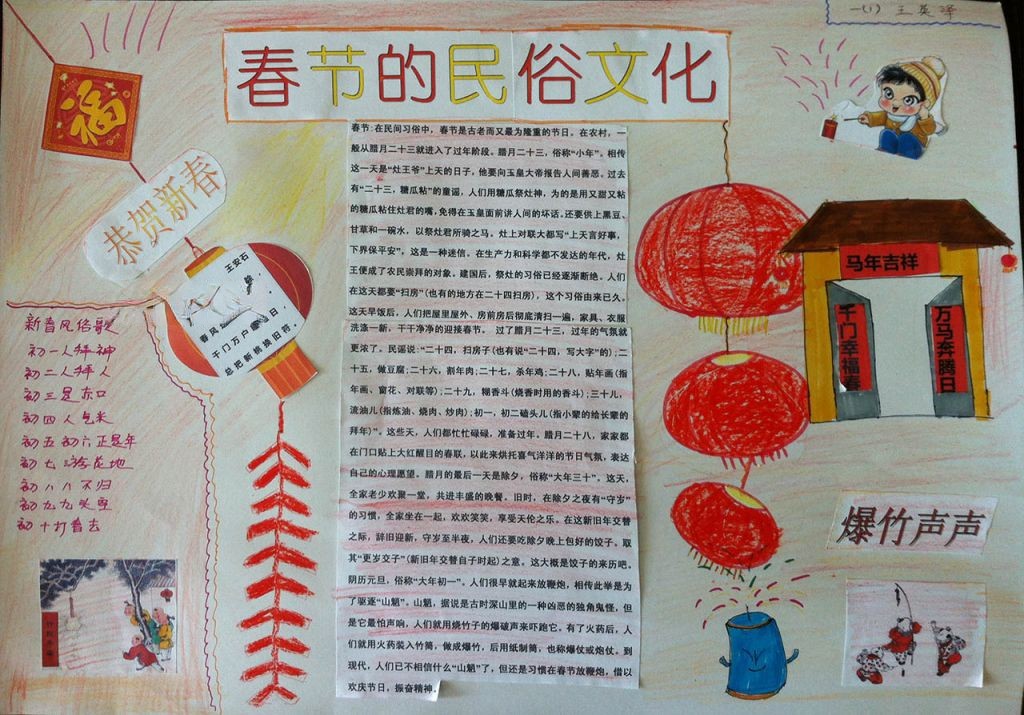 一(1) 王英泽
春节的民俗文化
福
恭贺新春
王安石
春风
千门万户
日
总把新桃换旧符。
新春风俗歌
初一人拜神
初二人拜人
初三是赤口
初四人乞米
初五初六正是年
初七游花地
初八八不归
初九九头空
初十打春去
春节:在民间习俗中,春节是古老而又最为隆重的节日。在农村,一
般从腊月二十三就进入了过年阶段。腊月二十三,俗称“小年”。相传
这一天是“灶王爷”上天的日子,他要向玉皇大帝报告人间善恶。过去
有“二十三,糖瓜粘”的童谣,人们用糖瓜祭灶神,为的是用又甜又粘
的糖瓜粘住灶君的嘴,免得在玉皇面前讲人间的坏话。还要供上黑豆、
甘草和一碗水,以祭灶君所骑之马。灶上对联大都写“上天言好事,
下界保平安”,这是一种迷信。在生产力和科学都不发达的年代,灶
王便成了农民崇拜的对象。建国后,祭灶的习俗已经逐渐断绝。人们
在这天都要“扫房”(也有的地方在二十四扫房),这个习俗由来已久。
这天早饭后,人们把屋里屋外、房前房后彻底清扫一遍,家具、衣服
洗涤一新,干干净净的迎接春节。 过了腊月二十三,过年的气氛就
更浓了。民谣说:“二十四,扫房子(也有说“二十四,写大字”的);二十
五,做豆腐;二十六,割年肉;二十七,杀年鸡;二十八,贴年画(指
年画、窗花、对联等);二十九,糊香斗(烧香时用的香斗);三十八,
流油儿(指炼油、烧肉、炒肉);初一,初二磕头儿(指小辈的给长辈的
拜年)”。这些天,人们都忙忙碌碌,准备过年。腊月二十八,家家都
在门口贴上大红醒目的春联,以此来烘托喜气洋洋的节日气氛,表达
自己的心理愿望。腊月的最后一天是除夕,俗称“大年三十”。这天,
全家老少欢聚一堂,共进丰盛的晚餐。旧时,在除夕之夜有“守岁”
的习惯,全家坐在一起,欢欢笑笑,享受天伦之乐。在这新旧年交替
之际,辞旧迎新,守岁至半夜,人们还要吃除夕晚上包好的饺子。取
其“更岁交子”(新旧年交替自子时起)之意。这大概是饺子的来历吧。
阴历元旦,俗称“大年初一”。人们很早就起来放鞭炮,相传此举是为
了驱逐“山魈”。山魈,据说是古时深山里的一种凶恶的独角鬼怪,但
是它最怕声响,人们就用烧竹子的爆破声来吓跑它。有了火药后,人
们就用火药装入竹筒,做成爆竹,后用纸制筒,也称爆仗或炮仗。到
现代,人们已不相信什么“山魈”了,但还是习惯在春节放鞭炮,借以
欢庆节日,振奋精神。
马年吉祥
千门幸福春
万马奔腾日
爆竹声声